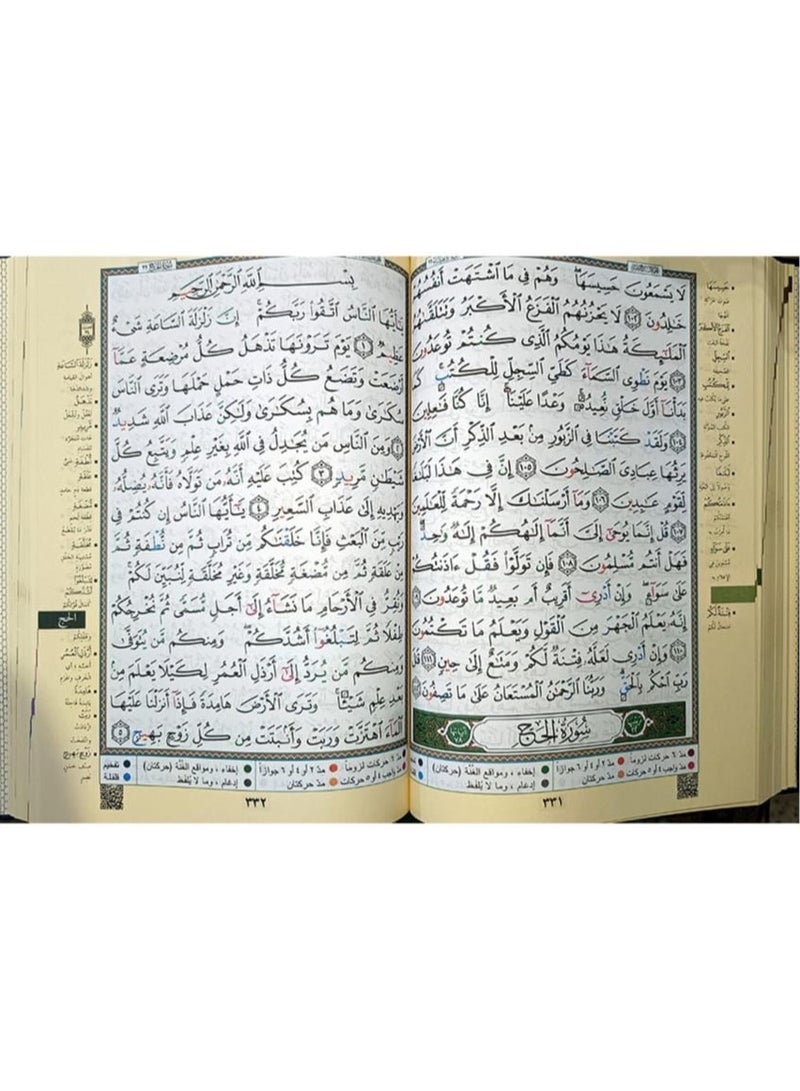 لَا يَسْمَعُونَ حَسِيسَهَا ۖ وَهُمْ فِي مَا اشْتَهَتْ أَنفُسُهُمْ
خَالِدُونَ ١٠٢ لَا يَحْزُنُهُمُ الْفَزَعُ الْأَكْبَرُ وَتَتَلَقَّاهُمُ
الْمَلَائِكَةُ هَٰذَا يَوْمُكُمُ الَّذِي كُنتُمْ تُوعَدُونَ
١٠٣ يَوْمَ نَطْوِي السَّمَاءَ كَطَيِّ السِّجِلِّ لِلْكُتُبِ ۚ كَمَا
بَدَأْنَا أَوَّلَ خَلْقٍ نُّعِيدُهُ ۚ وَعْدًا عَلَيْنَا ۚ إِنَّا كُنَّا فَاعِلِينَ
١٠٤ وَلَقَدْ كَتَبْنَا فِي الزَّبُورِ مِن بَعْدِ الذِّكْرِ أَنَّ الْأَرْضَ
يَرِثُهَا عِبَادِيَ الصَّالِحُونَ ١٠٥ إِنَّ فِي هَٰذَا لَبَلَاغًا
لِّقَوْمٍ عَابِدِينَ ١٠٦ وَمَا أَرْسَلْنَاكَ إِلَّا رَحْمَةً لِّلْعَالَمِينَ
١٠٧ قُلْ إِنَّمَا يُوحَىٰ إِلَيَّ أَنَّمَا إِلَٰهُكُمْ إِلَٰهٌ وَاحِدٌ ۖ
فَهَلْ أَنتُم مُّسْلِمُونَ ١٠٨ فَإِن تَوَلَّوْا فَقُلْ آذَنتُكُمْ
عَلَىٰ سَوَاءٍ ۖ وَإِنْ أَدْرِي أَقَرِيبٌ أَم بَعِيدٌ مَّا تُوعَدُونَ ١٠٩
إِنَّهُ يَعْلَمُ الْجَهْرَ مِنَ الْقَوْلِ وَيَعْلَمُ مَا تَكْتُمُونَ
١١٠ وَإِنْ أَدْرِي لَعَلَّهُ فِتْنَةٌ لَّكُمْ وَمَتَاعٌ إِلَىٰ حِينٍ ١١١ قَالَ
رَبِّ احْكُم بِالْحَقِّ ۗ وَرَبُّنَا الرَّحْمَٰنُ الْمُسْتَعَانُ عَلَىٰ مَا تَصِفُونَ ١١٢
سُورَةُ الْحَجِّ
حَسِيسَهَا
السِّجِلِّ
الزَّبُورِ
الذِّكْرِ
فِتْنَةٌ لَّكُمْ
مدّ ٦ حركات لزوماً مدّ ٢ أو ٤ أو ٦ جوازاً إخفاء ، ومواقع الغُنّة (حركتان) تفخيم
مدّ واجب ٤ أو ٥ حركات مدّ حركتان إدغام ، وما لا يُلفظ قلقلة
٣٣١
بِسْمِ اللَّهِ الرَّحْمَٰنِ الرَّحِيمِ
يَا أَيُّهَا النَّاسُ اتَّقُوا رَبَّكُمْ ۚ إِنَّ زَلْزَلَةَ السَّاعَةِ شَيْءٌ
عَظِيمٌ ١ يَوْمَ تَرَوْنَهَا تَذْهَلُ كُلُّ مُرْضِعَةٍ عَمَّا
أَرْضَعَتْ وَتَضَعُ كُلُّ ذَاتِ حَمْلٍ حَمْلَهَا وَتَرَى النَّاسَ
سُكَارَىٰ وَمَا هُم بِسُكَارَىٰ وَلَٰكِنَّ عَذَابَ اللَّهِ شَدِيدٌ
٢ وَمِنَ النَّاسِ مَن يُجَادِلُ فِي اللَّهِ بِغَيْرِ عِلْمٍ وَيَتَّبِعُ كُلَّ
شَيْطَانٍ مَّرِيدٍ ٣ كُتِبَ عَلَيْهِ أَنَّهُ مَن تَوَلَّاهُ فَأَنَّهُ يُضِلُّهُ
وَيَهْدِيهِ إِلَىٰ عَذَابِ السَّعِيرِ ٤ يَا أَيُّهَا النَّاسُ إِن كُنتُمْ فِي
رَيْبٍ مِّنَ الْبَعْثِ فَإِنَّا خَلَقْنَاكُم مِّن تُرَابٍ ثُمَّ مِن نُّطْفَةٍ ثُمَّ
مِنْ عَلَقَةٍ ثُمَّ مِن مُّضْغَةٍ مُّخَلَّقَةٍ وَغَيْرِ مُخَلَّقَةٍ لِّنُبَيِّنَ لَكُمْ ۚ
وَنُقِرُّ فِي الْأَرْحَامِ مَا نَشَاءُ إِلَىٰ أَجَلٍ مُّسَمًّى ثُمَّ نُخْرِجُكُمْ
طِفْلًا ثُمَّ لِتَبْلُغُوا أَشُدَّكُمْ ۖ وَمِنكُم مَّن يُتَوَفَّىٰ
وَمِنكُم مَّن يُرَدُّ إِلَىٰ أَرْذَلِ الْعُمُرِ لِكَيْلَا يَعْلَمَ مِن
بَعْدِ عِلْمٍ شَيْئًا ۚ وَتَرَى الْأَرْضَ هَامِدَةً فَإِذَا أَنزَلْنَا عَلَيْهَا
الْمَاءَ اهْتَزَّتْ وَرَبَتْ وَأَنبَتَتْ مِن كُلِّ زَوْجٍ بَهِيجٍ ٥
زَلْزَلَةَ السَّاعَةِ
أهوال القيامة
تَذْهَلُ
الحج
أَرْذَلِ الْعُمُرِ
هَامِدَةً
زَوْجٍ بَهِيجٍ
مدّ ٦ حركات لزوماً مدّ ٢ أو ٤ أو ٦ جوازاً إخفاء ، ومواقع الغُنّة (حركتان) تفخيم
مدّ واجب ٤ أو ٥ حركات مدّ حركتان إدغام ، وما لا يُلفظ قلقلة
٣٣٢